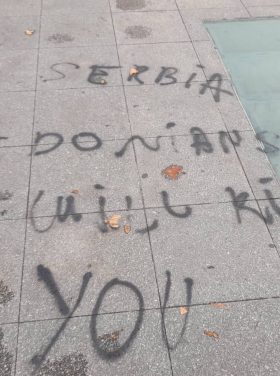 SERBIA
DONIANS
WILL Ki
YOU